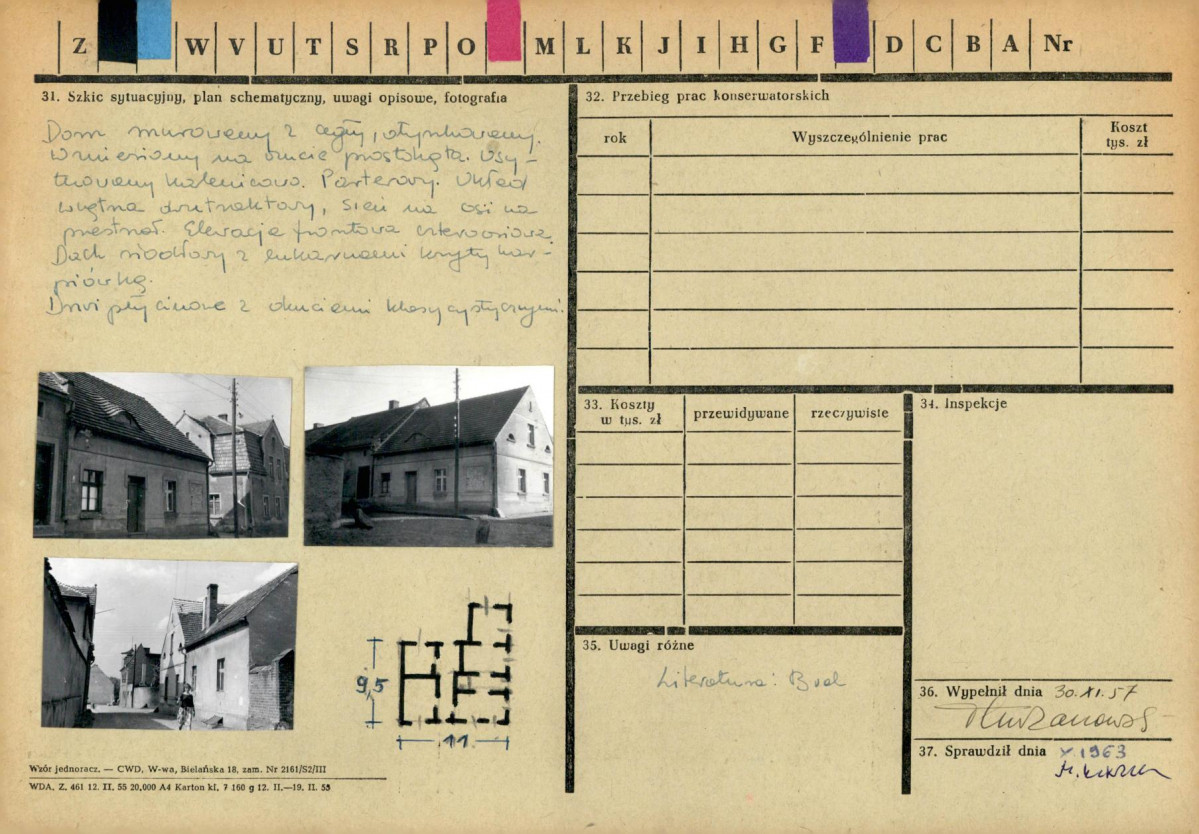 Z W V U T S R P O M L K J I H G F D C B A Nr
31. Szkic sytuacyjny, plan schematyczny, uwagi opisowe, fotografia
Dom murowany z cegły, otynkowany.
Wzniesiony na rzucie prostokąta. Usy-
tuowany kalenicowo. Parterowy. Układ
wnętrza dwutraktowy, sień na osi na
przestrzał. Elewacja frontowa czteroosiowa.
Dach siodłowy z lukarnami kryty kar-
piówką.
Drzwi płycinowe z okuciami klasycystycznymi.
9,5
11
Wzór jednoracz. — CWD, W-wa, Bielańska 18, zam. Nr 2161/S2/III
WDA. Z. 461 12. II. 55 20.000 A4 Karton kl. 7 160 g 12. II.—19. II. 55
32. Przebieg prac konserwatorskich
rok
Wyszczególnienie prac
Koszt
tys. zł
33. Koszty
w tys. zł
przewidywane
rzeczywiste
34. Inspekcje
35. Uwagi różne
Literatura: Brak
36. Wypełnił dnia 30.XI.57
37. Sprawdził dnia X 1963